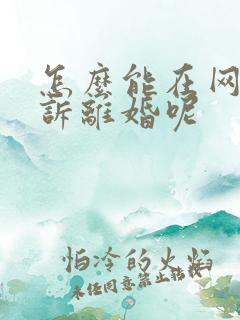 怎麽能在网
訴離婚呢
怕冷的火焰
未经同意禁止转载